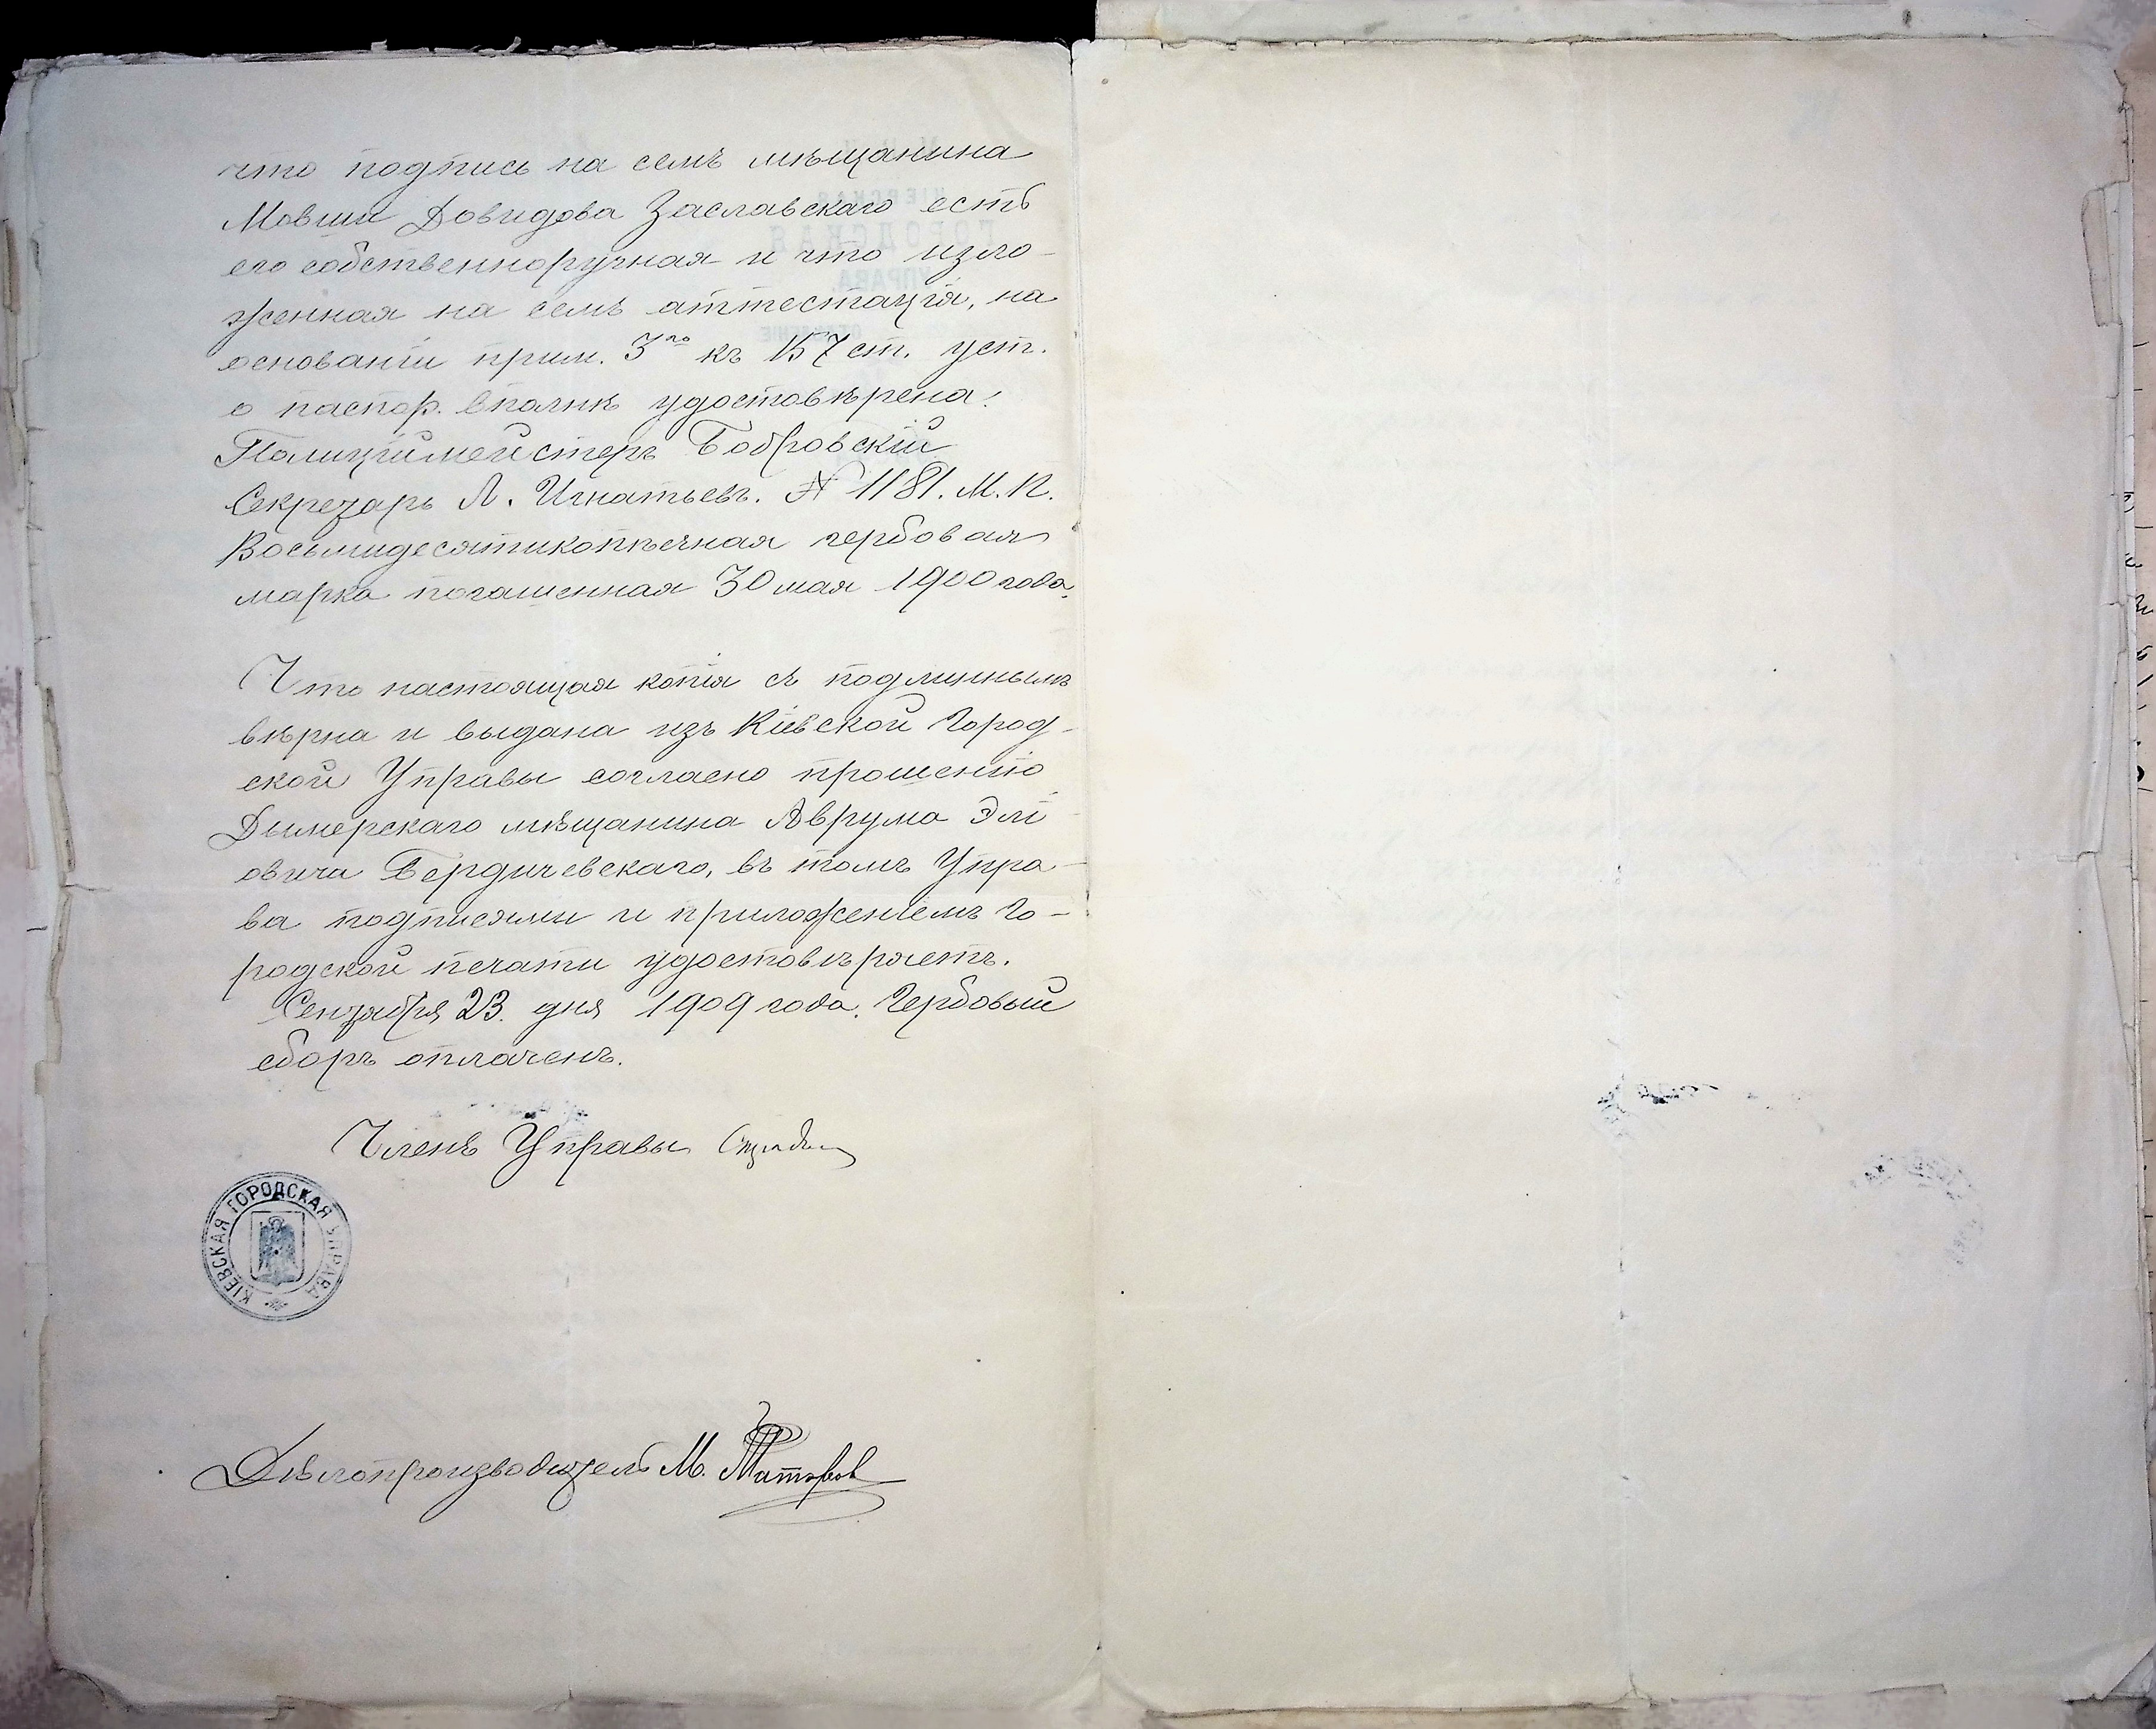 что подпись на семъ мѣщанина
Мовши Довидова Заславскаго есть
его собственноручная и что изло-
женная на семъ аттестація, на
основаніи прим. 3го къ 157 ст. уст.
о паспор. вполнѣ удостовѣрена.
Полиціймейстеръ Бобровскій
Секретарь Л. Игнатьевъ. № 1181. М.П.
Восьмидесятикопѣечная гербовая
марка погашенная 30 мая 1900 года.
Что настоящая копія съ подлиннымъ
вѣрна и выдана изъ Кіевской Город-
ской Управы согласно прошенію
Дымерскаго мѣщанина Аврума Элі-
овича Бердичевскаго, въ томъ Упра-
ва подписями и приложеніемъ Го-
родской печати удостовѣряетъ.
Сентября 23 дня 1909 года. Гербовый
сборъ оплаченъ.
Членъ Управы
КІЕВСКАЯ ГОРОДСКАЯ УПРАВА
Дѣлопроизводитель М.